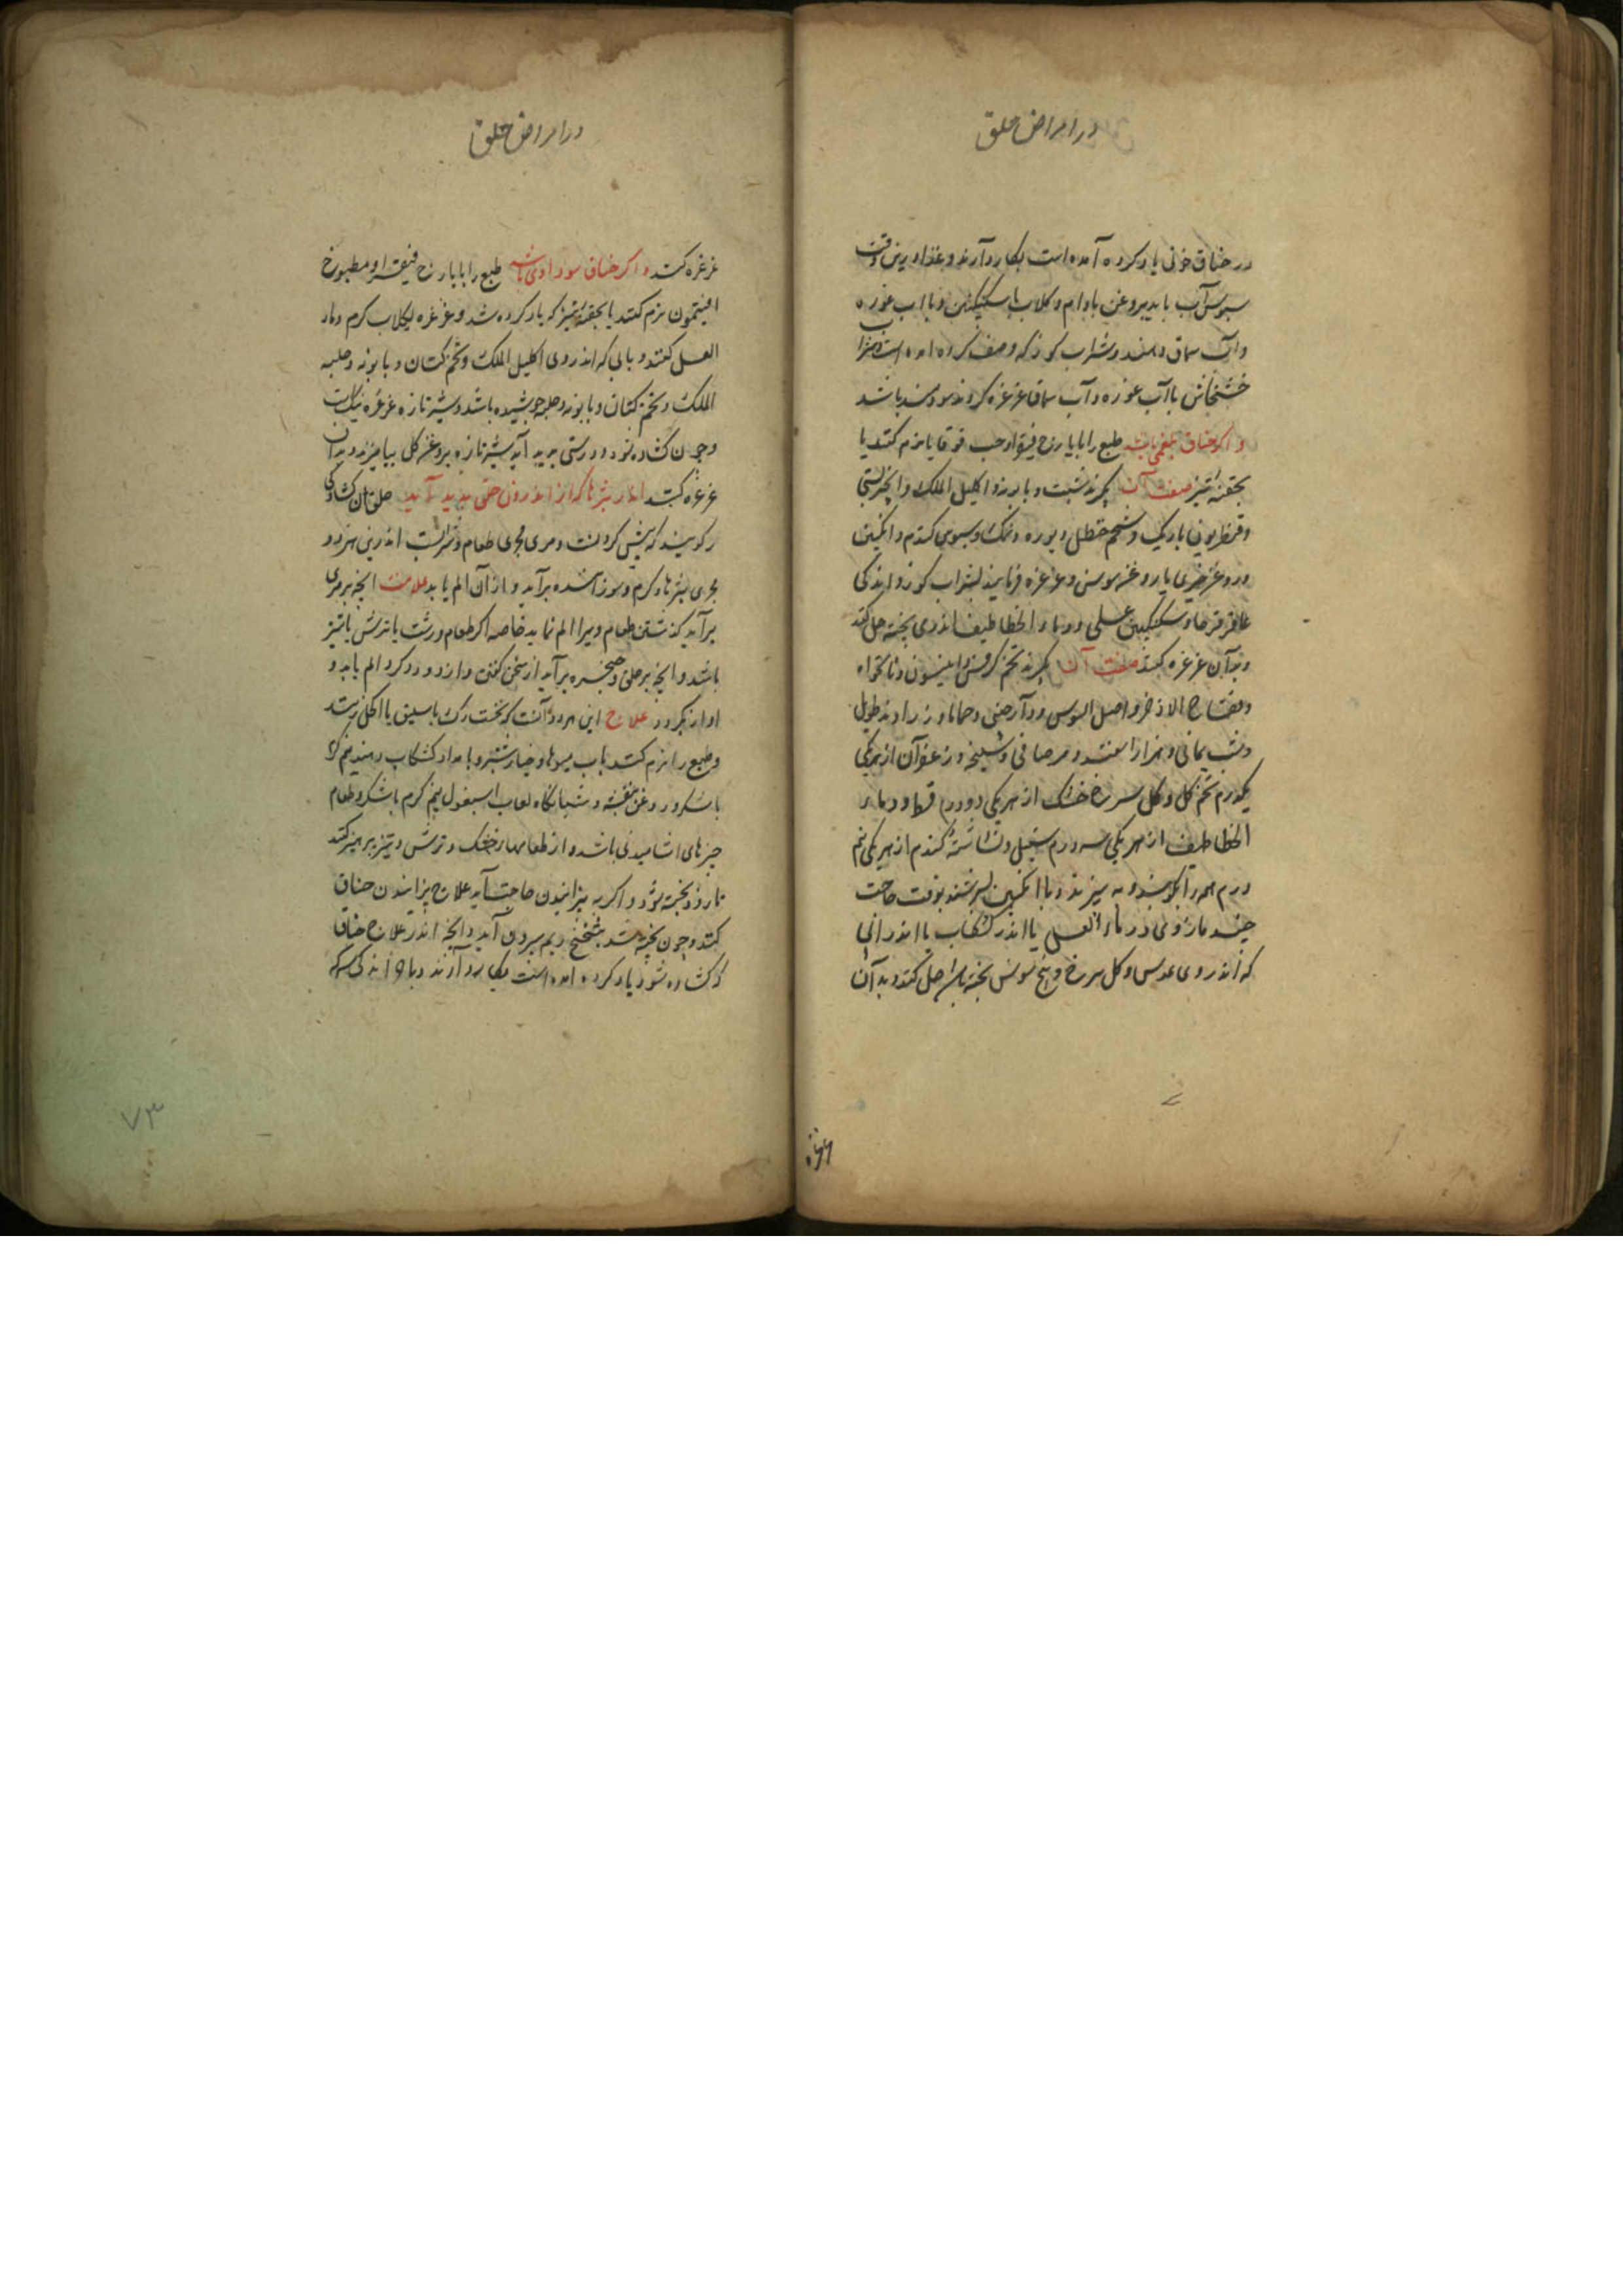 در امراض حلق
در خناق خونی یاد کرده آمده است بکار دارند و غذا درین وقت
سبوس آب باید بروغن بادام و کلاب با سکنکبین و با آب غوره
و آب سماق دهند و شراب کوز که وصف کرده آمده است
خشخاش با آب غوره و آب سماق غرغره کردن سودمند باشد
و اکر خناق بلغمی باشد طبع را بایارج فیقرا و حب قوقایا نرم کنند یا
بحقنه تیز صفت آن بکیرند شبت و بابونه و اکلیل الملک و انجیر بستی
و قنطریون باریک و شحم حنظل و بوره و نمک و سبوس کندم و انکبین
و روغن خیری یا روغن سوسن و غرغره فرمایند بشراب کوز و اندکی
عاقرقرحا و سکنکبین عسلی و دوا الخطاطیف اندری پخته حل کنند
و بدآن غرغره کنند صفت آن بکیرند تخم کرفس و انیسون و نانخواه
و فقاح الاذخر و اصل السوس و دارچنی و حماما و زراوند طویل
و شب یمانی و هزار اسفند و مر صافی و سلیخه و زعفرآن از هر یکی
یکدرم تخم کل و کل سرخ خشک از هر یکی دو درم قسط و رماد
الخطاطیف از هر یکی سه درم سنبل و نشاسته کندم از هر یکی نیم
درم همه را بکوبند و به بیزند و با انکبین بسرشند بوقت حاجت
چند مازوی در ماء العسل یا اندر کشکاب یا اندر آبی
که اندر وی عدس و کل سرخ و بیخ سوسن پخته باشند حل کنند و بدآن
در امراض حلق
غرغره کنند و اکر خناق سوداوی باشد طبع را بایارج فیقرا و مطبوخ
افیتمون نرم کنند یا بحقنه تیز که یاد کرده شد و غرغره بجلاب کرم و ماء
العسل کنند و بابی که اندر وی اکلیل الملک و تخم کتان و بابونه و حلبه
الملک و تخم کتان و بابونه و حلبه جوشیده باشد و شیر تازه غرغره نیک است
و چون کشاده شود و درستی پدید آید شیر تازه بروغن کل بیامیزند و بدآن
غرغره کنند اندر بثرها که از اندرون حلق پدید آید حلق آن کشادکی
را کویند که پیش کردنست و مری مجری طعام و شرابست اندرین هر دو
مجری بثرهاء کرم و سوزآننده برآید و از آن الم یابد علامت آنچه بر مری
برآید کذشتن طعام ویرا الم نماید خاصه اکر طعام درشت یا ترش یا تیز
باشد و آنچه بر حلق و حنجره برآید از سخن کفتن و از دود و کرد الم یابد و
آواز بکردد علاج این هر دو آنست که نخست رک باسلیق یا اکحل زنند
و طبع را نرم کنند باب میوها و خیارشنبر و بامداد کشکاب دهند نیم کرم
با شکر و روغن بنفشه و شبانکاه لعاب اسبغول نیم کرم با شکر و طعام
چیزهای آشامیدنی باشد و از طعامهاء خشک و ترش و تیز پرهیز کنند
تا زود پخته شود و اکر به پزانیدن حاجت آید علاج پزانیدن خناق
کنند و چون پخته شد بتنخنح ریم بیرون آید و آنچه اندر علاج خناق
که کشاده شود یاد کرده آمده است بکار دارند و با اندکی سرکه
۷۳